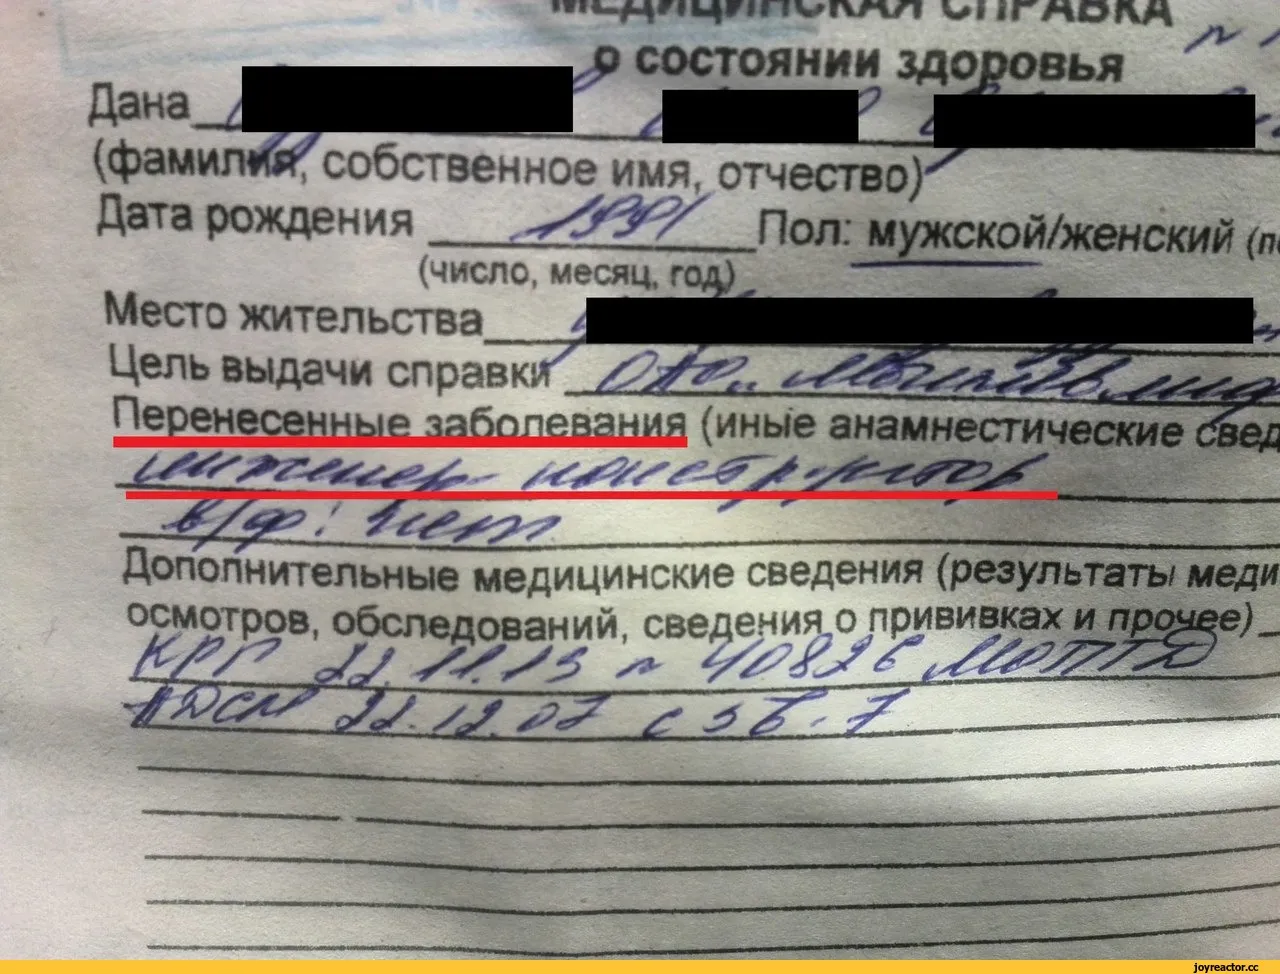 МЕДИЦИНСКАЯ СПРАВКА
о состоянии здоровья
Дана
(фамилия, собственное имя, отчество)
Дата рождения 1991 Пол: мужской/женский (п
(число, месяц, год)
Место жительства
Цель выдачи справки ОАО "
Перенесенные заболевания (иные анамнестические свед
инженер конструктор
в/ф: нет
Дополнительные медицинские сведения (результаты меди
осмотров, обследований, сведения о прививках и прочее)
КРГ 22.11.13 n 40826 МОПТД
АДСМ 22.12.07 с 3б-7
joyreactor.cc